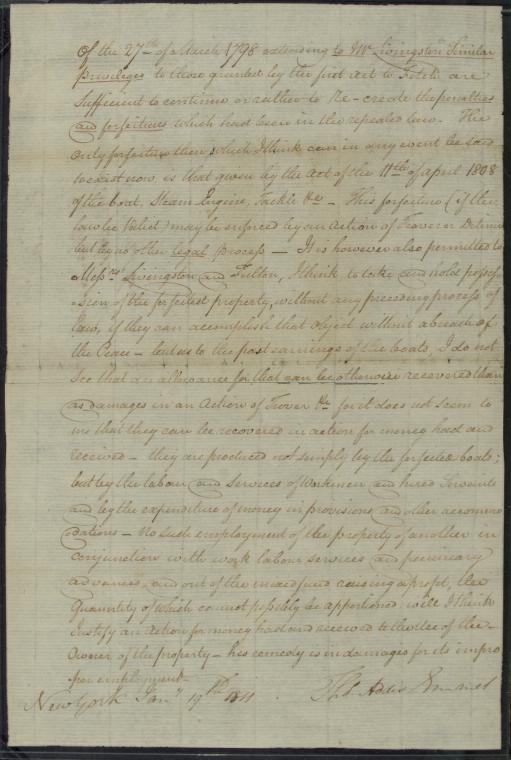 Of the 27th of March 1798 extending to Mr Livingston Similar
Privileges to those granted by the first act to Fitch are
Sufficient to continue or rather to Re-create the penalties
and forfeitures which had been in the repealed law. The
only forfeiture then, which I think can in any event be said
to exist now, is that given by the Act of the 11th of April 1808
of the boat, Steam Engine, Tackle &c - This forfeiture (if the
law be Valid) may be enforced by an Action of Trover or Detinue
but by no other legal process — It is however also permitted to
Messrs Livingston and Fulton, I think to take and hold posses-
-sion of the forfeited property, without any preceding process of
Law, if they can accomplish that object without a breach of
the Peace - but as to the past earnings of the boats, I do not
See that an allowance for that can be otherwise recovered than
as damages in an Action of Trover &c for it does not seem to
me that they can be recovered in action for money had and
received - they are produced not simply by the forfeited boats;
but by the labour and services of Workmen and hired Servants
and by the expenditure of money in provisions and other accommo
dations - No such employment of the property of another in
conjunction with work labour services and pecuniary
advances, and out of the mixed fund raising a profit, the
Quantity of which cannot possibly be apportioned will I think
Justify an Action for money had and received to the Use of the
Owner of the property - his remedy is in damages for its impro
per employment-
New York Jany 19th 1811. Ths. Addis Emmet